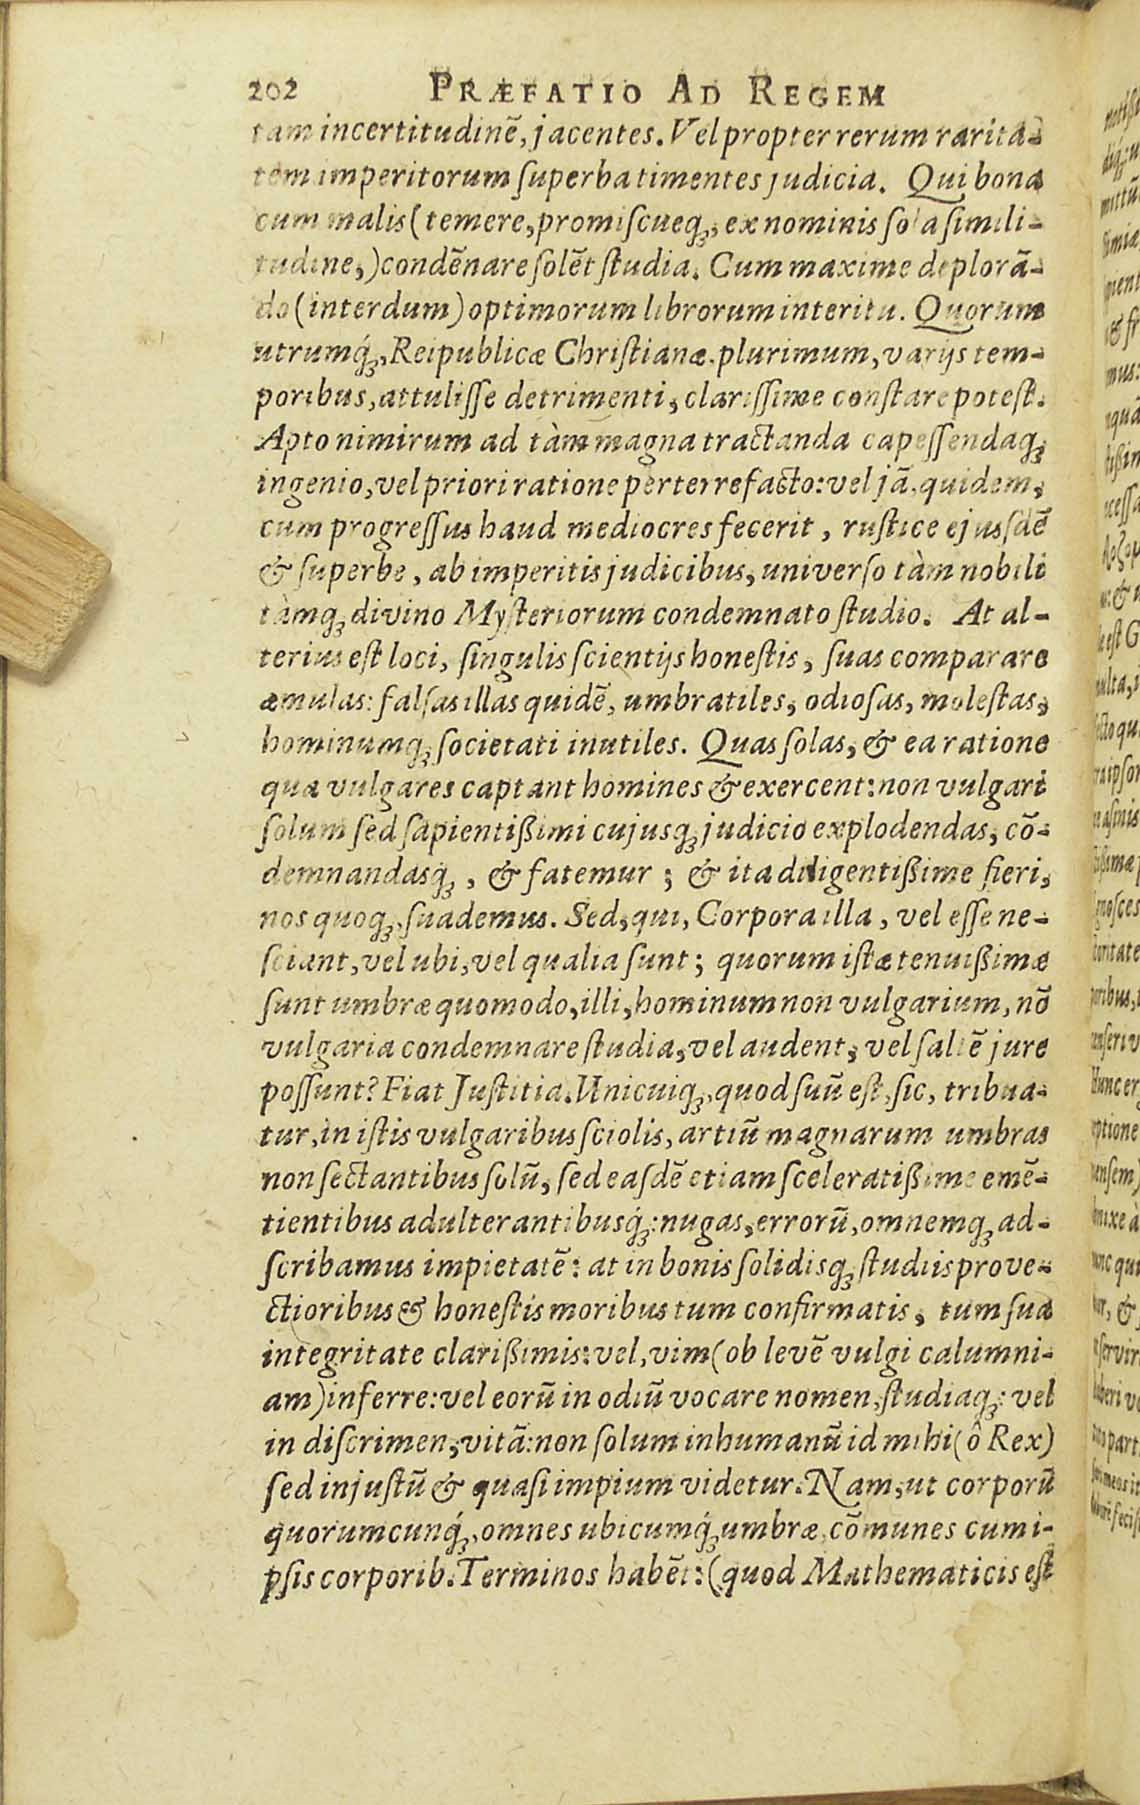 202 PRÆFATIO AD REGEM
tam incertitudinē, jacentes. Vel propter rerum rarita-
tem imperitorum ſuperba timentes judicia. Qui bona
cum malis (temere, promiſcueq́ꝫ, ex nominis ſola ſimili-
tudine,) condēnare ſolēt ſtudia. Cum maxime deplorā-
do (interdum) optimorum librorum interitu. Quorum
utrumq́ꝫ, Reipublicæ Chriſtianæ. plurimum, varijs tem-
poribus, attuliſſe detrimenti, clariſſime conſtare poteſt.
Apto nimirum ad tàm magna tractanda capeſſendaq́ꝫ
ingenio, vel priori ratione perterrefacto: vel jā, quidem,
cum progreſſus haud mediocres fecerit, ruſtice ejusdē
& ſuperbe, ab imperitis judicibus, univerſo tàm nobili
tàmq́ꝫ divino Myſteriorum condemnato ſtudio. At al-
terius eſt loci, ſingulis ſcientijs honeſtis, ſuas comparare
æmulas: falſas illas quidē, umbratiles, odioſas, moleſtas,
hominumq́ꝫ ſocietati inutiles. Quas ſolas, & ea ratione
qua vulgares captant homines & exercent: non vulgari
ſolum ſed ſapientißimi cujusq́ꝫ judicio explodendas, cō-
demnandasq́ꝫ, & fatemur; & ita diligentißime fieri,
nos quoq́ꝫ, ſuademus. Sed, qui, Corpora illa, vel eſſe ne-
ſciant, vel ubi, vel qualia ſunt; quorum iſtæ tenuißimæ
ſunt umbræ quomodo, illi, hominum non vulgarium, nō
vulgaria condemnare ſtudia, vel audent, vel ſaltē jure
poſſunt? Fiat Juſtitia. Unicuiq́ꝫ, quod ſuū eſt, ſic, tribua-
tur, in iſtis vulgaribus ſciolis, artiū magnarum umbras
non ſectantibus ſolū, ſed easdē etiam ſceleratißime emē-
tientibus adulterantibusq́ꝫ: nugas, errorū, omnemq́ꝫ ad-
ſcribamus impietatē: at in bonis ſolidisq́ꝫ ſtudiis prove-
ctioribus & honeſtis moribus tum confirmatis, tum ſua
integritate clarißimis: vel, vim (ob levē vulgi calumni-
am) inferre: vel eorū in odiū vocare nomen, ſtudiaq́ꝫ: vel
in diſcrimen, vitā: non ſolum inhumanū id mihi (ô Rex)
ſed injuſtū & quaſi impium videtur. Nam, ut corporū
quorumcunq́ꝫ, omnes ubicumq́ꝫ umbræ, cōmunes cum i-
pſis corporib. Terminos habēt: (quod Mathematicis eſt